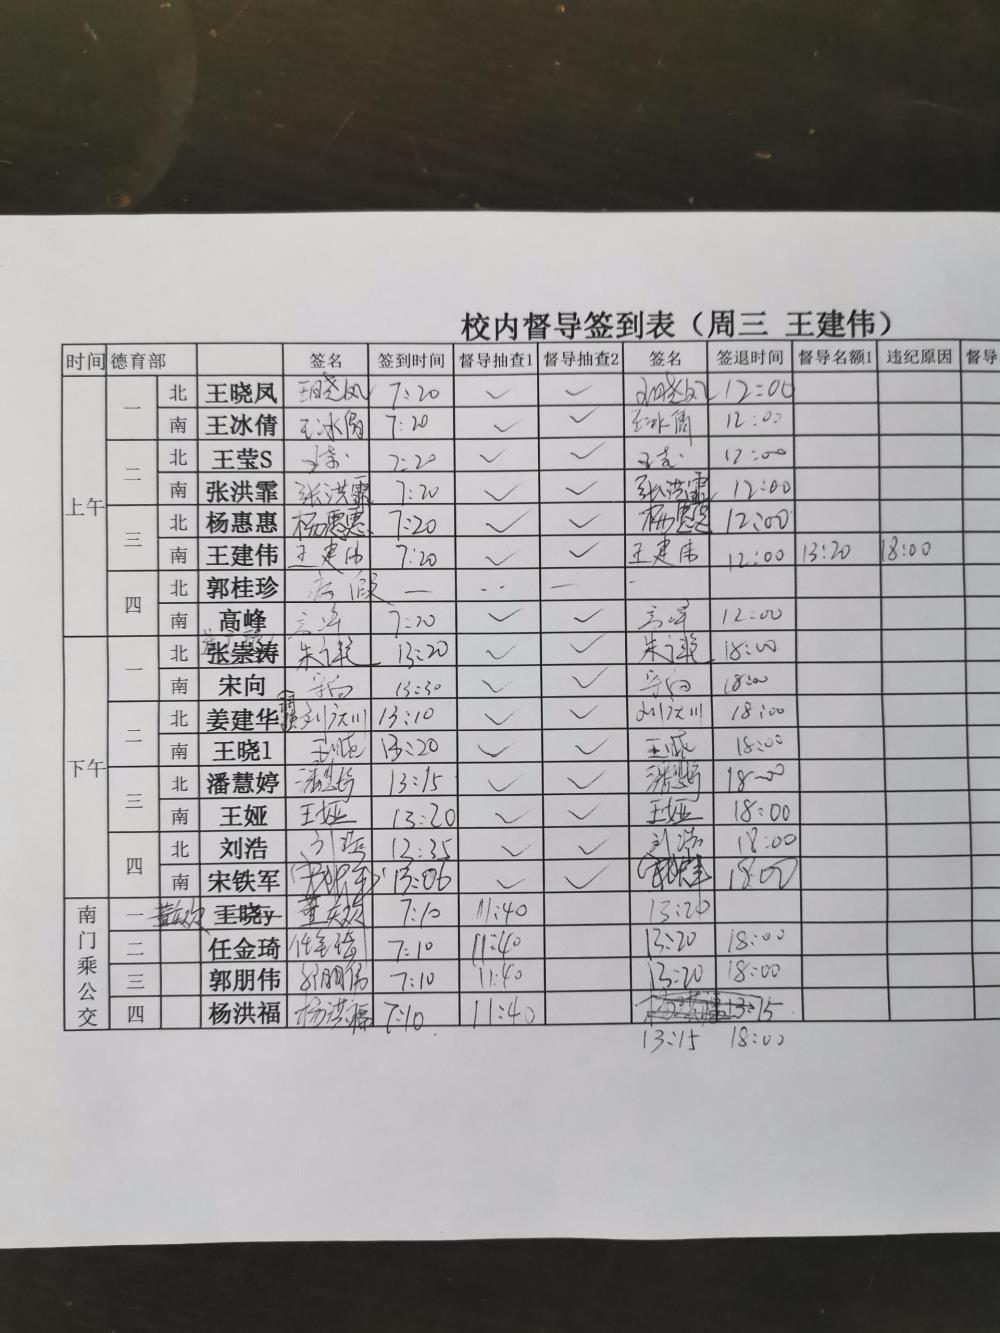 校内督导签到表（周三 王建伟）
时间 德育部 签名 签到时间 督导抽查1 督导抽查2 签名 签退时间 督导名额1 违纪原因 督导
上午 一 北 王晓凤 王晓凤 7:20 ✓ ✓ 王晓凤 12:00
南 王冰倩 王冰倩 7:20 ✓ ✓ 王冰倩 12:00
二 北 王莹S 王莹 7:20 ✓ ✓ 王莹 12:00
南 张洪霏 张洪霏 7:20 ✓ ✓ 张洪霏 12:00
三 北 杨惠惠 杨惠惠 7:20 ✓ ✓ 杨惠惠 12:00
南 王建伟 王建伟 7:20 ✓ ✓ 王建伟 12:00 13:20 18:00
四 北 郭桂珍 病假 —
南 高峰 高峰 7:20 ✓ ✓ 高峰 12:00
下午 一 北 张崇涛 13:20 ✓ ✓ 18:00
南 宋向 宋向 13:30 ✓ ✓ 宋向 18:00
二 北 姜建华 刘庆川 13:10 ✓ ✓ 刘庆川 18:00
南 王晓1 王晓 13:20 ✓ ✓ 王晓 18:00
三 北 潘慧婷 潘慧婷 13:15 ✓ ✓ 潘慧婷 18:00
南 王娅 王娅 13:20 ✓ ✓ 王娅 18:00
四 北 刘浩 刘浩 12:35 ✓ ✓ 刘浩 18:00
南 宋铁军 宋铁军 13:06 ✓ ✓ 宋铁军 18:00
南门乘公交 一 王晓y 7:10 11:40 13:20
二 任金琦 任金琦 7:10 11:40 13:20 18:00
三 郭朋伟 郭朋伟 7:10 11:40 13:20 18:00
四 杨洪福 杨洪福 7:10 11:40 13:15
13:15 18:00